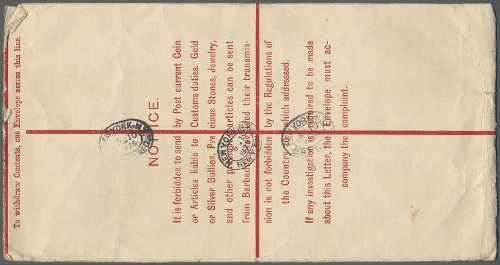 To withdraw Contents, cut Envelope across this line.
NOTICE.
It is forbidden to send by Post current Coin
or Articles liable to Customs duties. Gold
or Silver Bullion, Precious Stones, Jewelry,
and other precious articles can be sent
from Barbados provided their transmis-
sion is not forbidden by the Regulations of
the Country to which addressed.
If any investigation is desired to be made
about this Letter, the Envelope must ac-
company the complaint.
NEW YORK, N.Y.
NEW YORK, N.Y.
NEW YORK